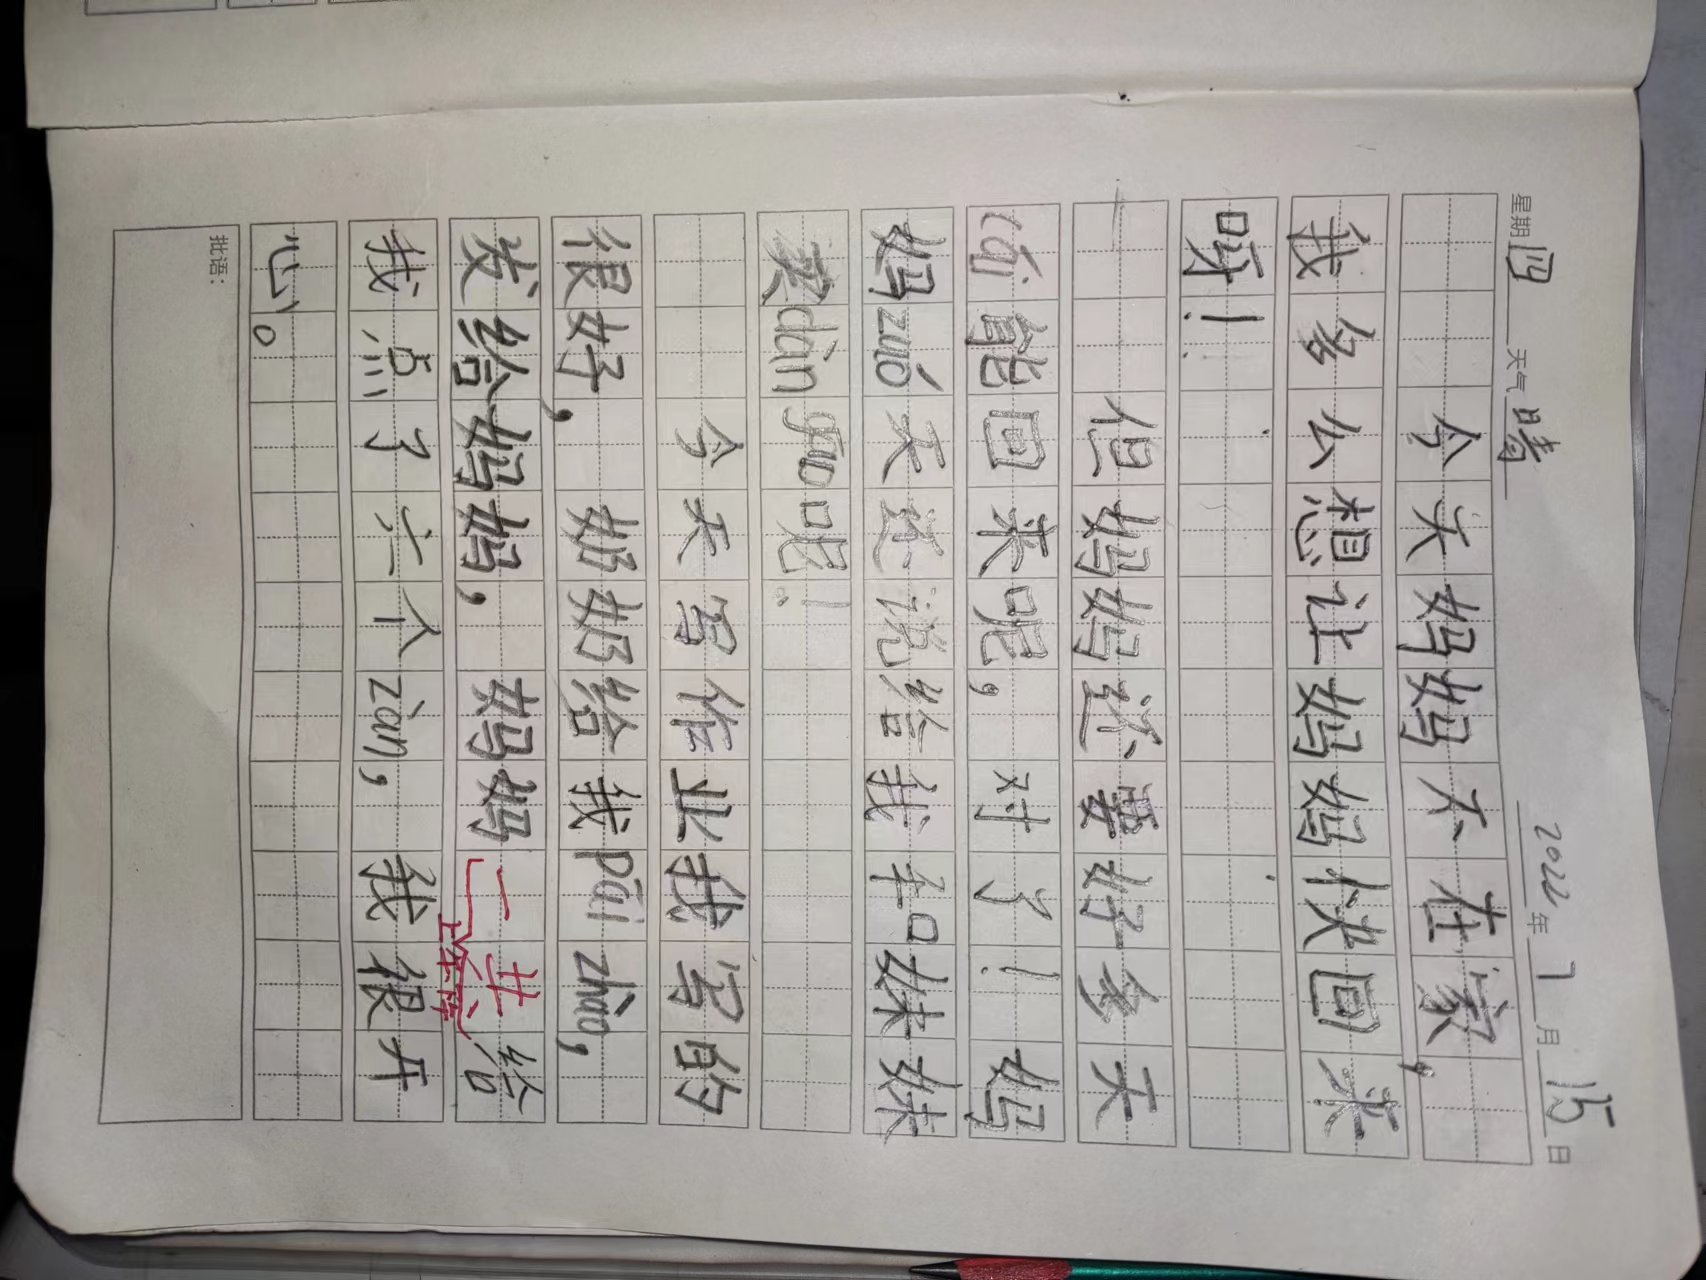 星期四 天气晴 2022年7月15日
今天妈妈不在家，
我多么想让妈妈快回来
呀！
但妈妈还要好多天
cái能回来呢，对了！妈
妈zuó天还说给我和妹妹
买dàn gāo呢！
今天写作业我写的
很好，奶奶给我pāi zhào，
发给妈妈，妈妈一共给
我点了六个zàn，我很开
心。
批语：